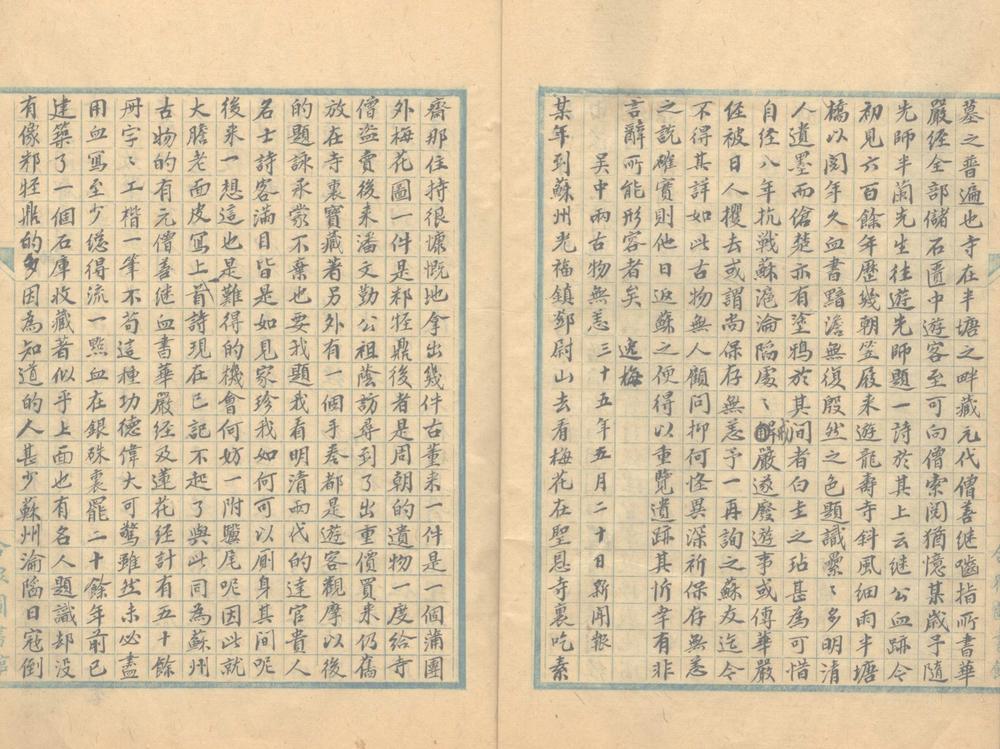 墓之普遍也寺在半塘之畔藏元代僧善继嚙指所書華
嚴经全部儲石匱中遊客至可向僧索阅猶憶某歲予隨
先師半蘭先生往遊先師題一詩於其上云继公血跡今
初見六百餘年歷幾朝笠屐来遊龍壽寺斜風细雨半塘
橋以阅年久血書黯澹無復殷然之色題識纍〻多明清
人遺墨而傖楚亦有塗鴉於其间者白圭之玷甚為可惜
自经八年抗戰蘇滬淪陥處〻戒嚴遂廢遊事或傳華嚴
经被日人攫去或謂尚保存無恙予一再詢之蘇友迄今
不得其詳如此古物無人顧问抑何怪異深祈保存無恙
之説確實則他日返蘇之便得以重覽遺跡其忻幸有非
言辭所能形容者矣　逸梅
吴中兩古物無恙　三十五年五月二十日新闻报
某年到蘇州光福鎮鄧尉山去看梅花在聖恩寺裏吃素
齋那住持很慷慨地拿出幾件古董来一件是一個蒲團
外梅花圖一件是邾牼鼎後者是周朝的遺物一度给寺
僧盜賣後来潘文勤公祖蔭訪尋到了出重價買来仍舊
放在寺裏寶藏著另外有一個手卷都是遊客觀摩以後
的題詠承蒙不棄也要我題我有明清两代的達官貴人
名士詩客滿目皆是如見家珍我如何可以廁身其间呢
後来一想這也是難得的機會何妨一附驥尾呢因此就
大膽老而皮寫上一首詩現在已記不起了與此同為蘇州
古物的有元僧善继血書華嚴经及蓮花经計有五十餘
册字〻工楷一筆不苟這種功德偉大可驚雖然未必盡
用血寫至少總得流一點血在銀硃裏罷二十餘年前已
建築了一個石庫收藏著似乎上面也有名人題識却没
有像邾牼鼎的多因為知道的人甚少蘇州淪陥日寇倒